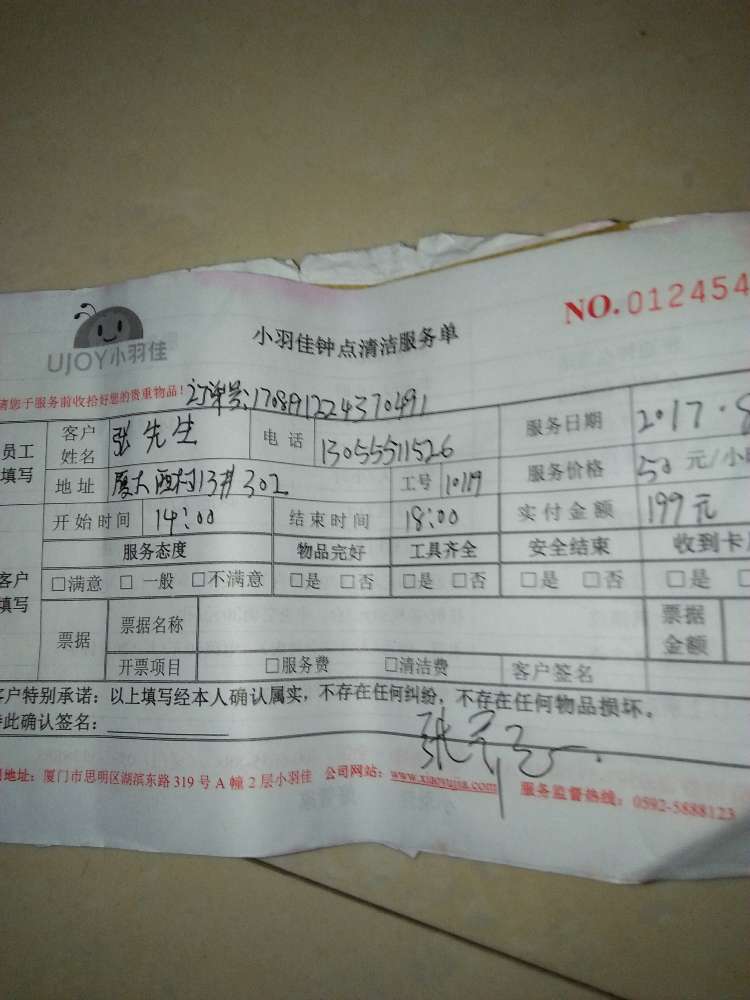 NO.012454
UJOY小羽佳
小羽佳钟点清洁服务单
请您于服务前收拾好您的贵重物品！订单号:170891224370491
员工填写 客户姓名 张先生 电话 13055511526 服务日期 2017.8
地址 厦大西村13# 302 工号 10119 服务价格 50元/小
开始时间 14:00 结束时间 18:00 实付金额 199元
客户填写 服务态度 物品完好 工具齐全 安全结束 收到卡
□满意 □一般 □不满意 □是 □否 □是 □否 □是 □否 □是
票据 票据名称 票据金额
开票项目 □服务费 □清洁费 客户签名
客户特别承诺：以上填写经本人确认属实，不存在任何纠纷，不存在任何物品损坏。
特此确认签名： 张
地址：厦门市思明区湖滨东路319号A幢2层小羽佳 公司网站：www.xiaoyujia.com 服务监督热线：0592-5888123